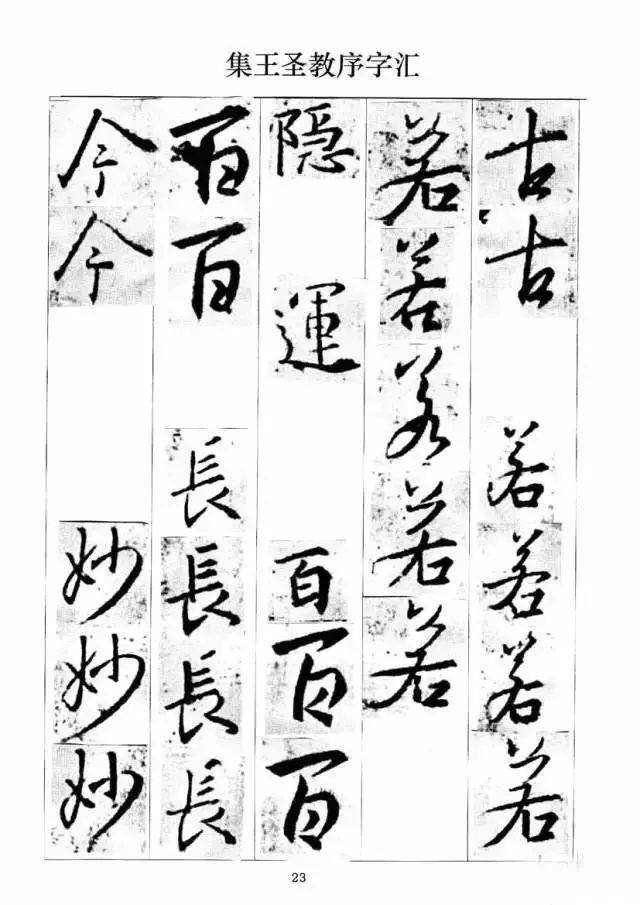 集王圣教序字汇
古古若若若若
若若若若若
隐運百百百
百百長長長長
今今妙妙妙
23